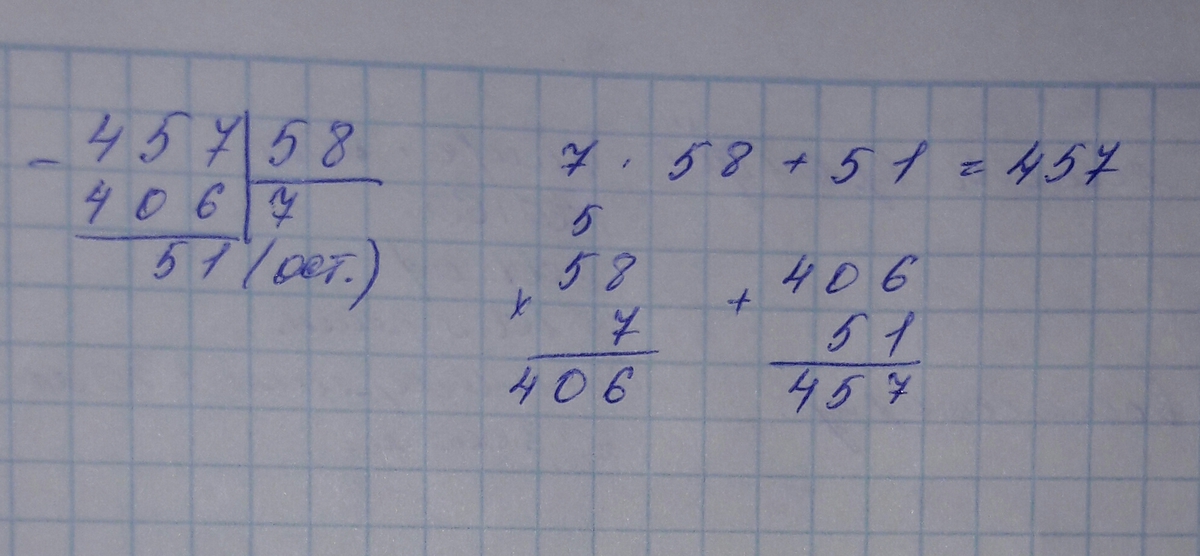 - 457 58
406 7
51 (ост.)
7 · 58 + 51 = 457
5
58
× 7
406
+ 406
51
457